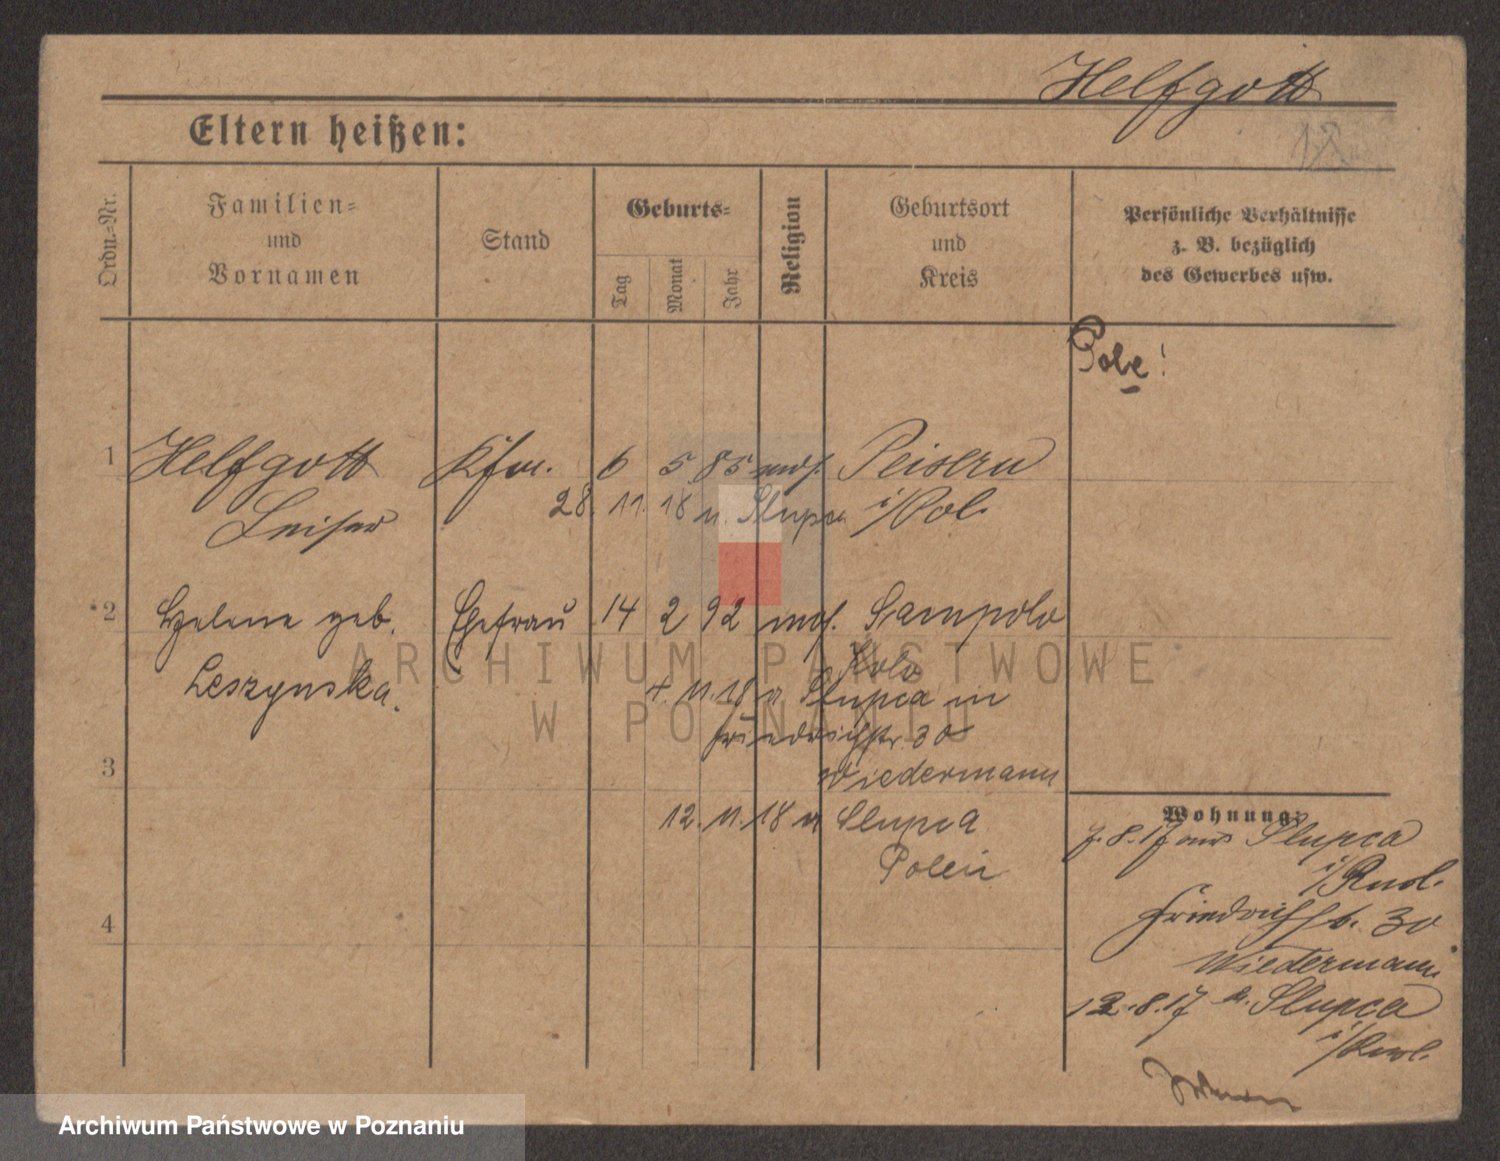 Helfgott
Eltern heißen:
12
Ordn.=Nr.
Familien=
und
Vornamen
Stand
Geburts=
Tag
Monat
Jahr
Religion
Geburtsort
und
Kreis
Persönliche Verhältnisse
z. B. bezüglich
des Gewerbes usw.
Pole!
1 Helfgott Kfm. 6 5 85 mos. Peisern
Leiser 28. 11. 18 n. Slupca i/Pol.
2 Helene geb. Ehefrau 14 2 92 mos. Sampolo
Leszynska.
Kolo
4. 11. 18 a Slupca in
Friedrichstr. 30
3
Wiedermann
12. 11. 18 n Slupca
Polen
4
Wohnung:
7. 8. 17 aus Slupca
i/Russl.
Friedrichstr. 30
Wiedermann
12. 8. 17 n. Slupca
i/Russl.
ARCHIWUM PAŃSTWOWE
W POZNANIU
Archiwum Państwowe w Poznaniu